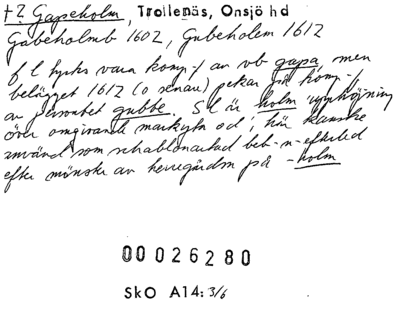 †2. Gapeholm, Trollenäs, Onsjö hd
Gabeholmb 1602, Gubeholem 1612
f l tycks vara komp./ av vb gapa, men
belägget 1612 (o senare) pekar på komp./
av personbet gubbe. S l är holm 'upphöjning
över omgivande markyta od', här kanske
använd som schablonartad beb-n-efterled
efter mönster av herregårdsn på -holm
00026280
SkO A14: 3/6